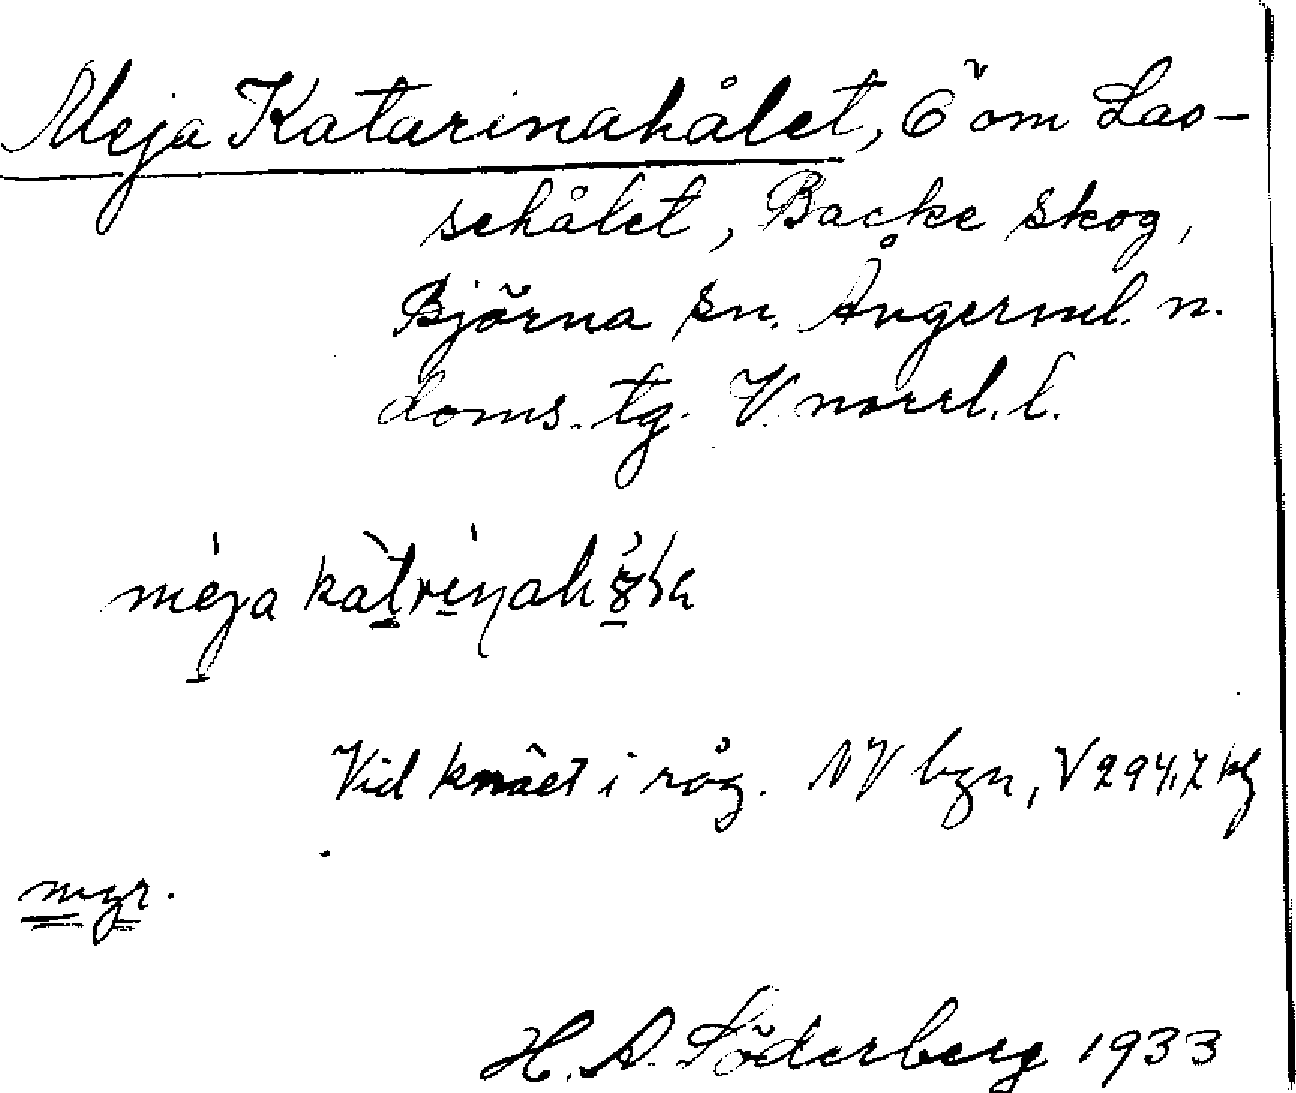 Meja Katarinahålet, Ö om Las-
sehålet, Backe skog,
Björna sn. Ångerml. n.
doms. tg. V. norrl. l.
Vid knäet i råg. NV byn, V 294,7 kj
myr.
H. A. Söderberg 1933